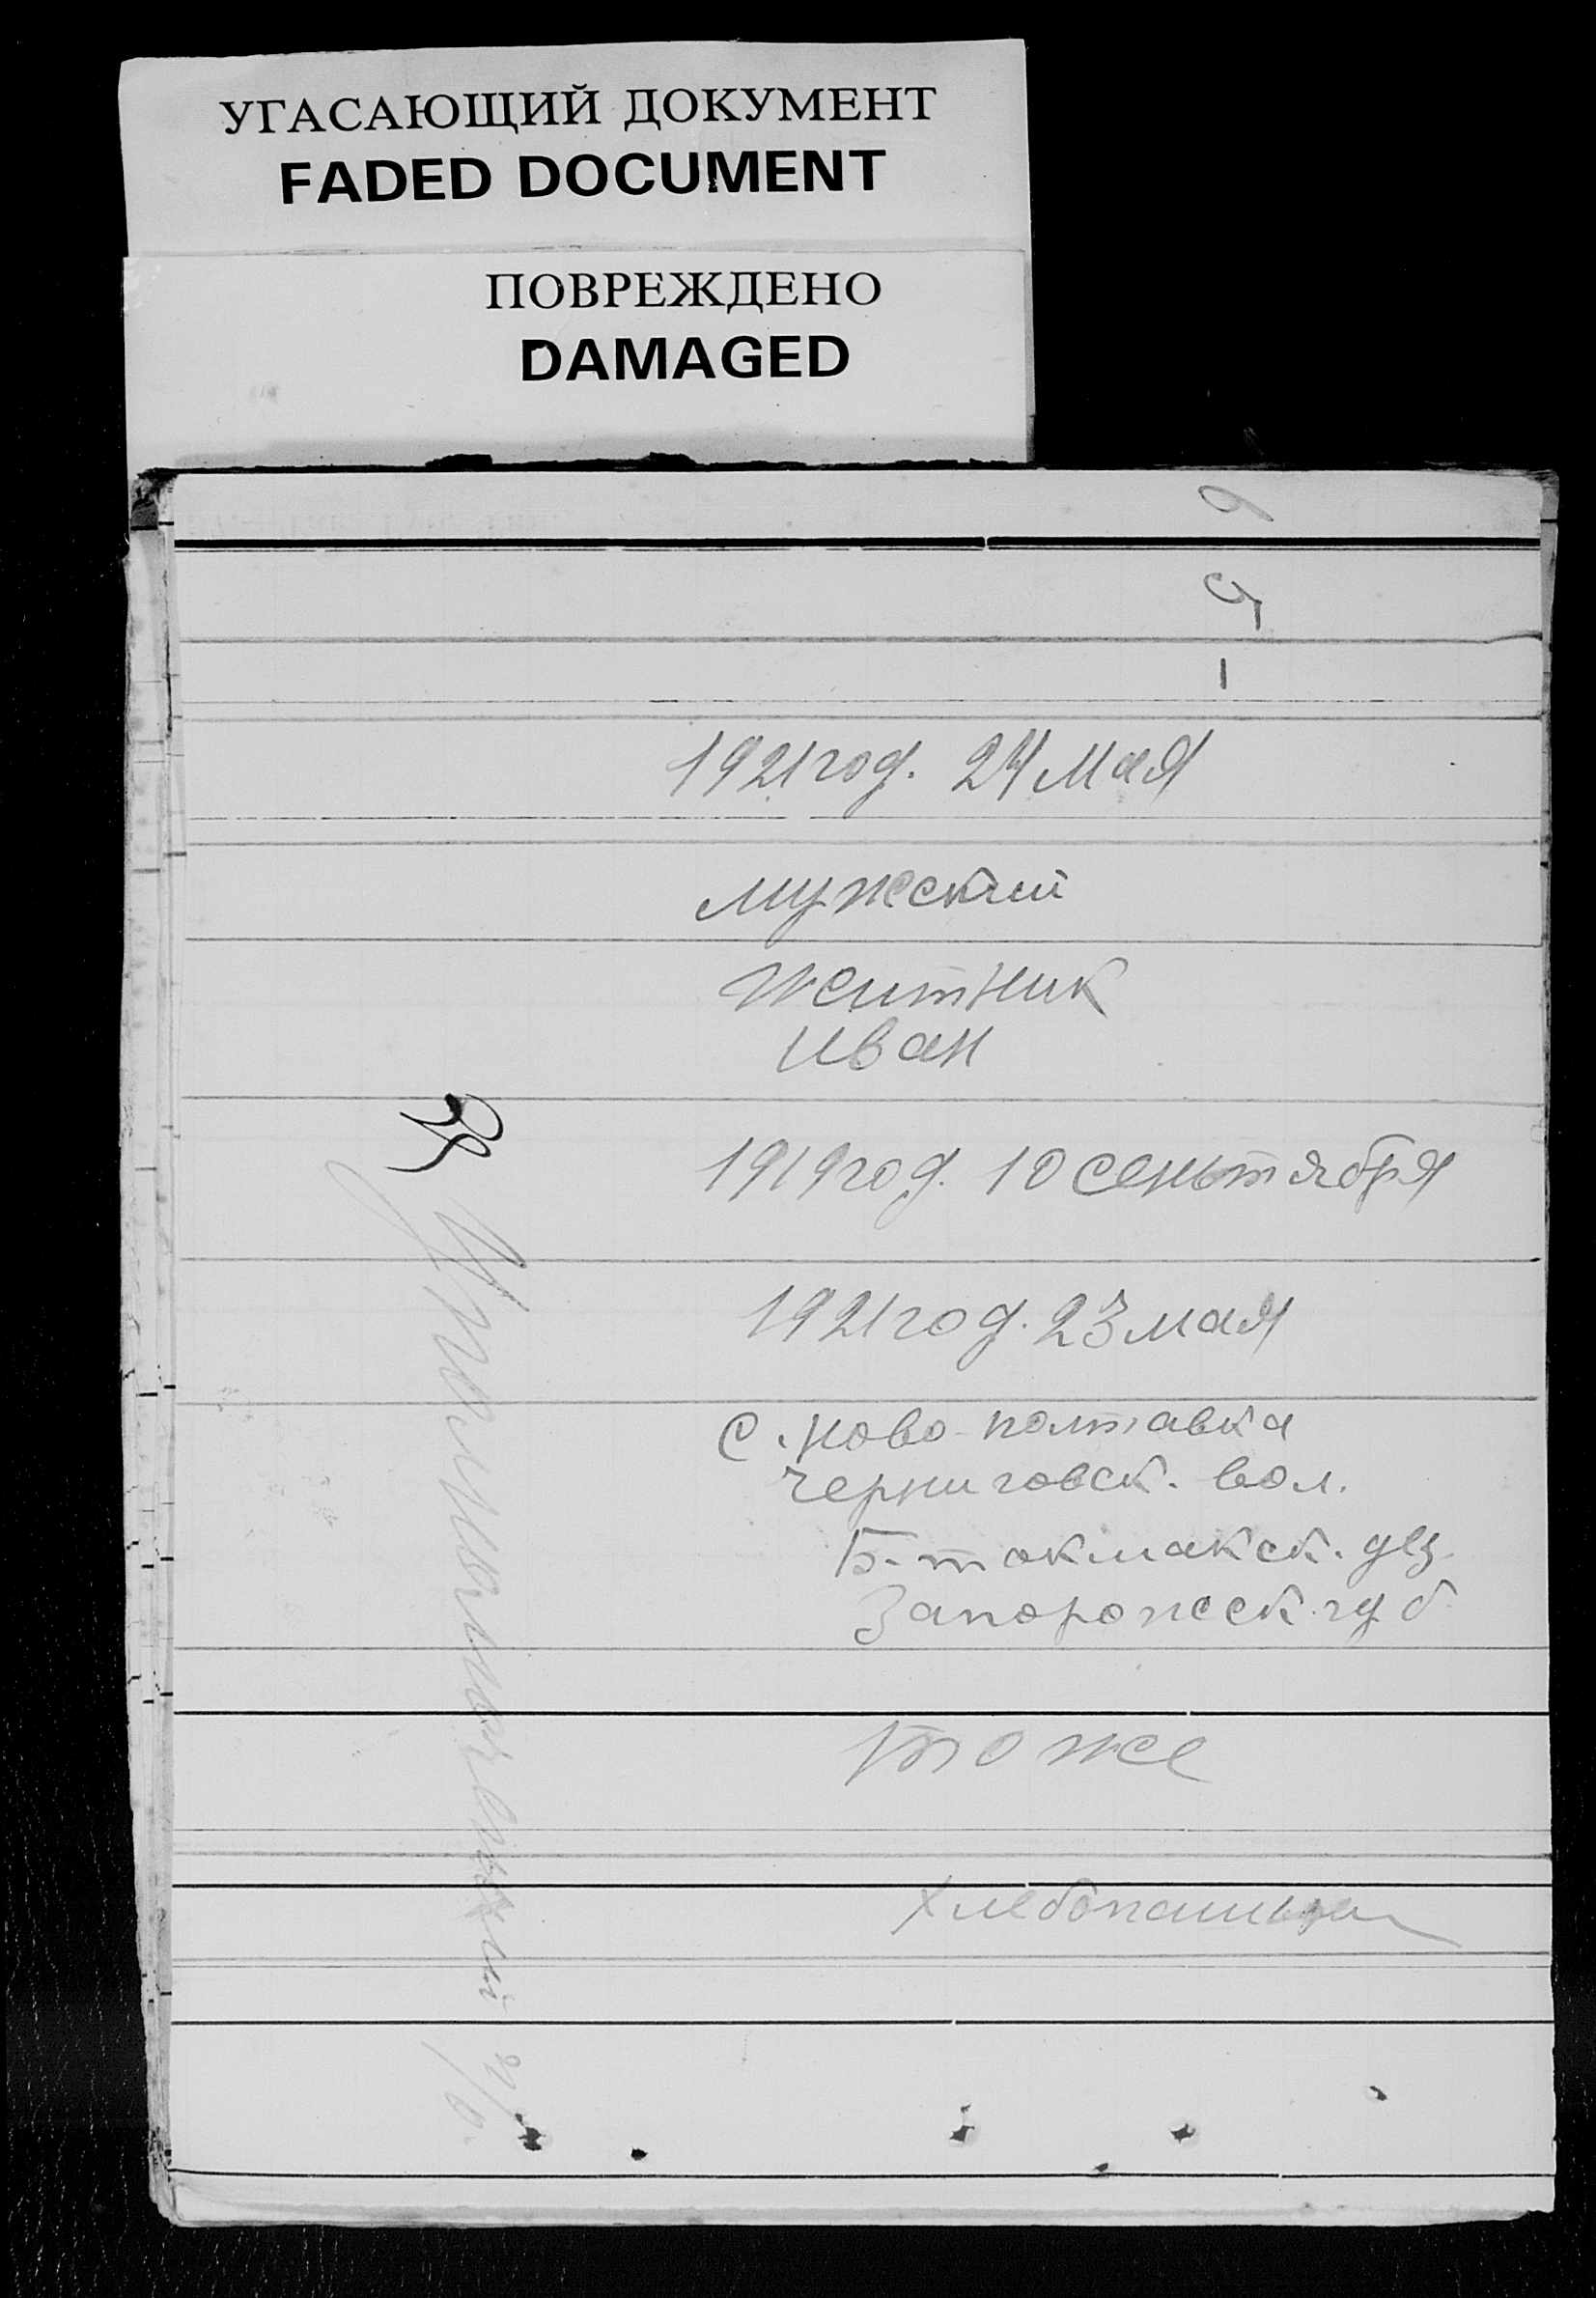 УГАСАЮЩИЙ ДОКУМЕНТ
FADED DOCUMENT
ПОВРЕЖДЕНО
DAMAGED
1921 год. 24 мая
мужской
Житник
Иван
1919 год. 10 сеньтября
1921 год. 23 мая
с. Ново-полтавка
Черниговск. вол.
Б-токмакск. уез.
Запорожск. губ
тоже